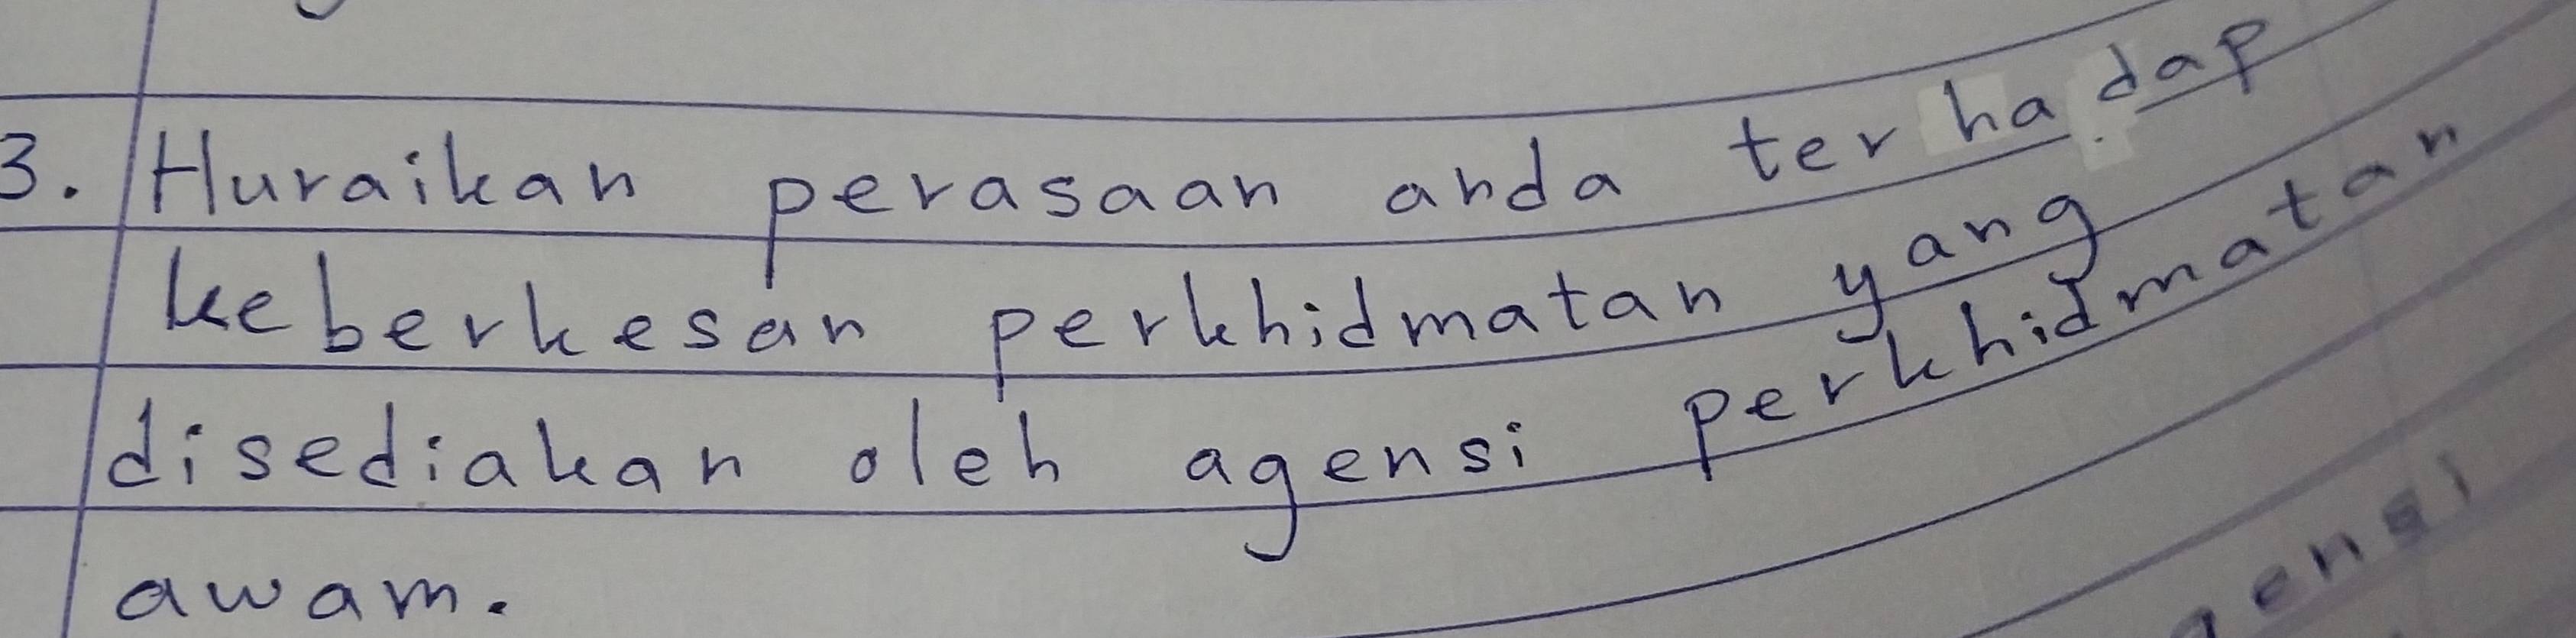 3. Huraikan perasaan anda terhadap
keberkesan perkhidmatan yang
disediakan oleh agensi perkhidmatan
awam.